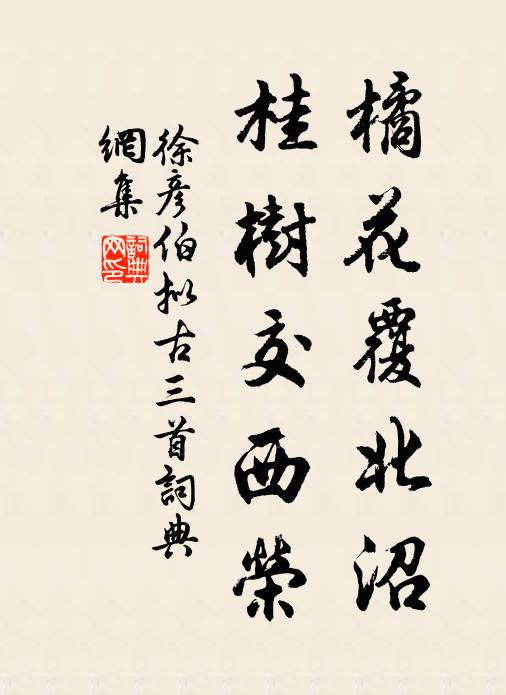 橘花覆北沼
桂樹交西榮
徐彥伯擬古三首詞典
網集
詞典網印